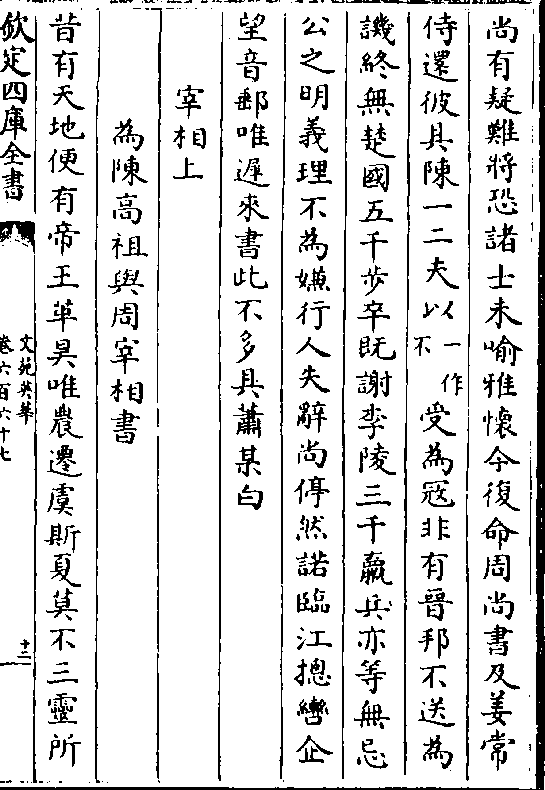 尚有疑難將恐諸士未喻雅懷今復命周尚書及姜常
侍還彼具陳一二夫以一作不受為寇非有晉邦不送為
譏終無楚國五千步卒既謝李陵三千羸兵亦等無忌
公之明義理不為嫌行人失辭尚停然諾臨江揔轡企
望音郵唯遲來書此不多具蕭某白
宰相上
為陳高祖與周宰相書
昔有天地便有帝王革昊唯農遷虞斯夏莫不三靈所
欽定四庫全書
文苑英華
卷六百六十七
十二